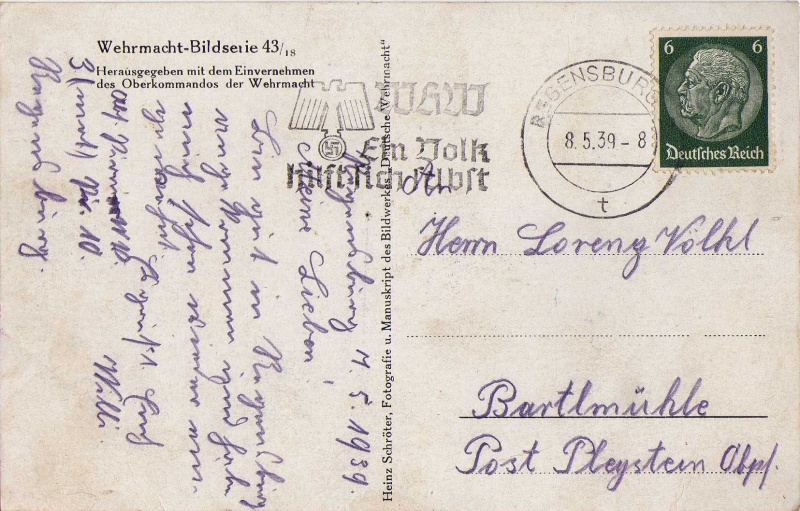 Wehrmacht-Bildserie 43/18
Herausgegeben mit dem Einvernehmen
des Oberkommandos der Wehrmacht
WHW
Ein Volk
hilft sich selbst
REGENSBURG
8.5.39-8
t
6 6
Deutsches Reich
Heinz Schröter, Fotografie u. Manuskript des Bildwerkes „Deutsche Wehrmacht“
Regensburg 7.5.1939.
Meine Lieben!
Bin gut in Regensburg
angekommen und habe
auch schon wieder
Es grüßt Euch
Willi
Regensburg.
An
Herrn Lorenz Völkl
Bartlmühle
Post Pleystein Obpf.